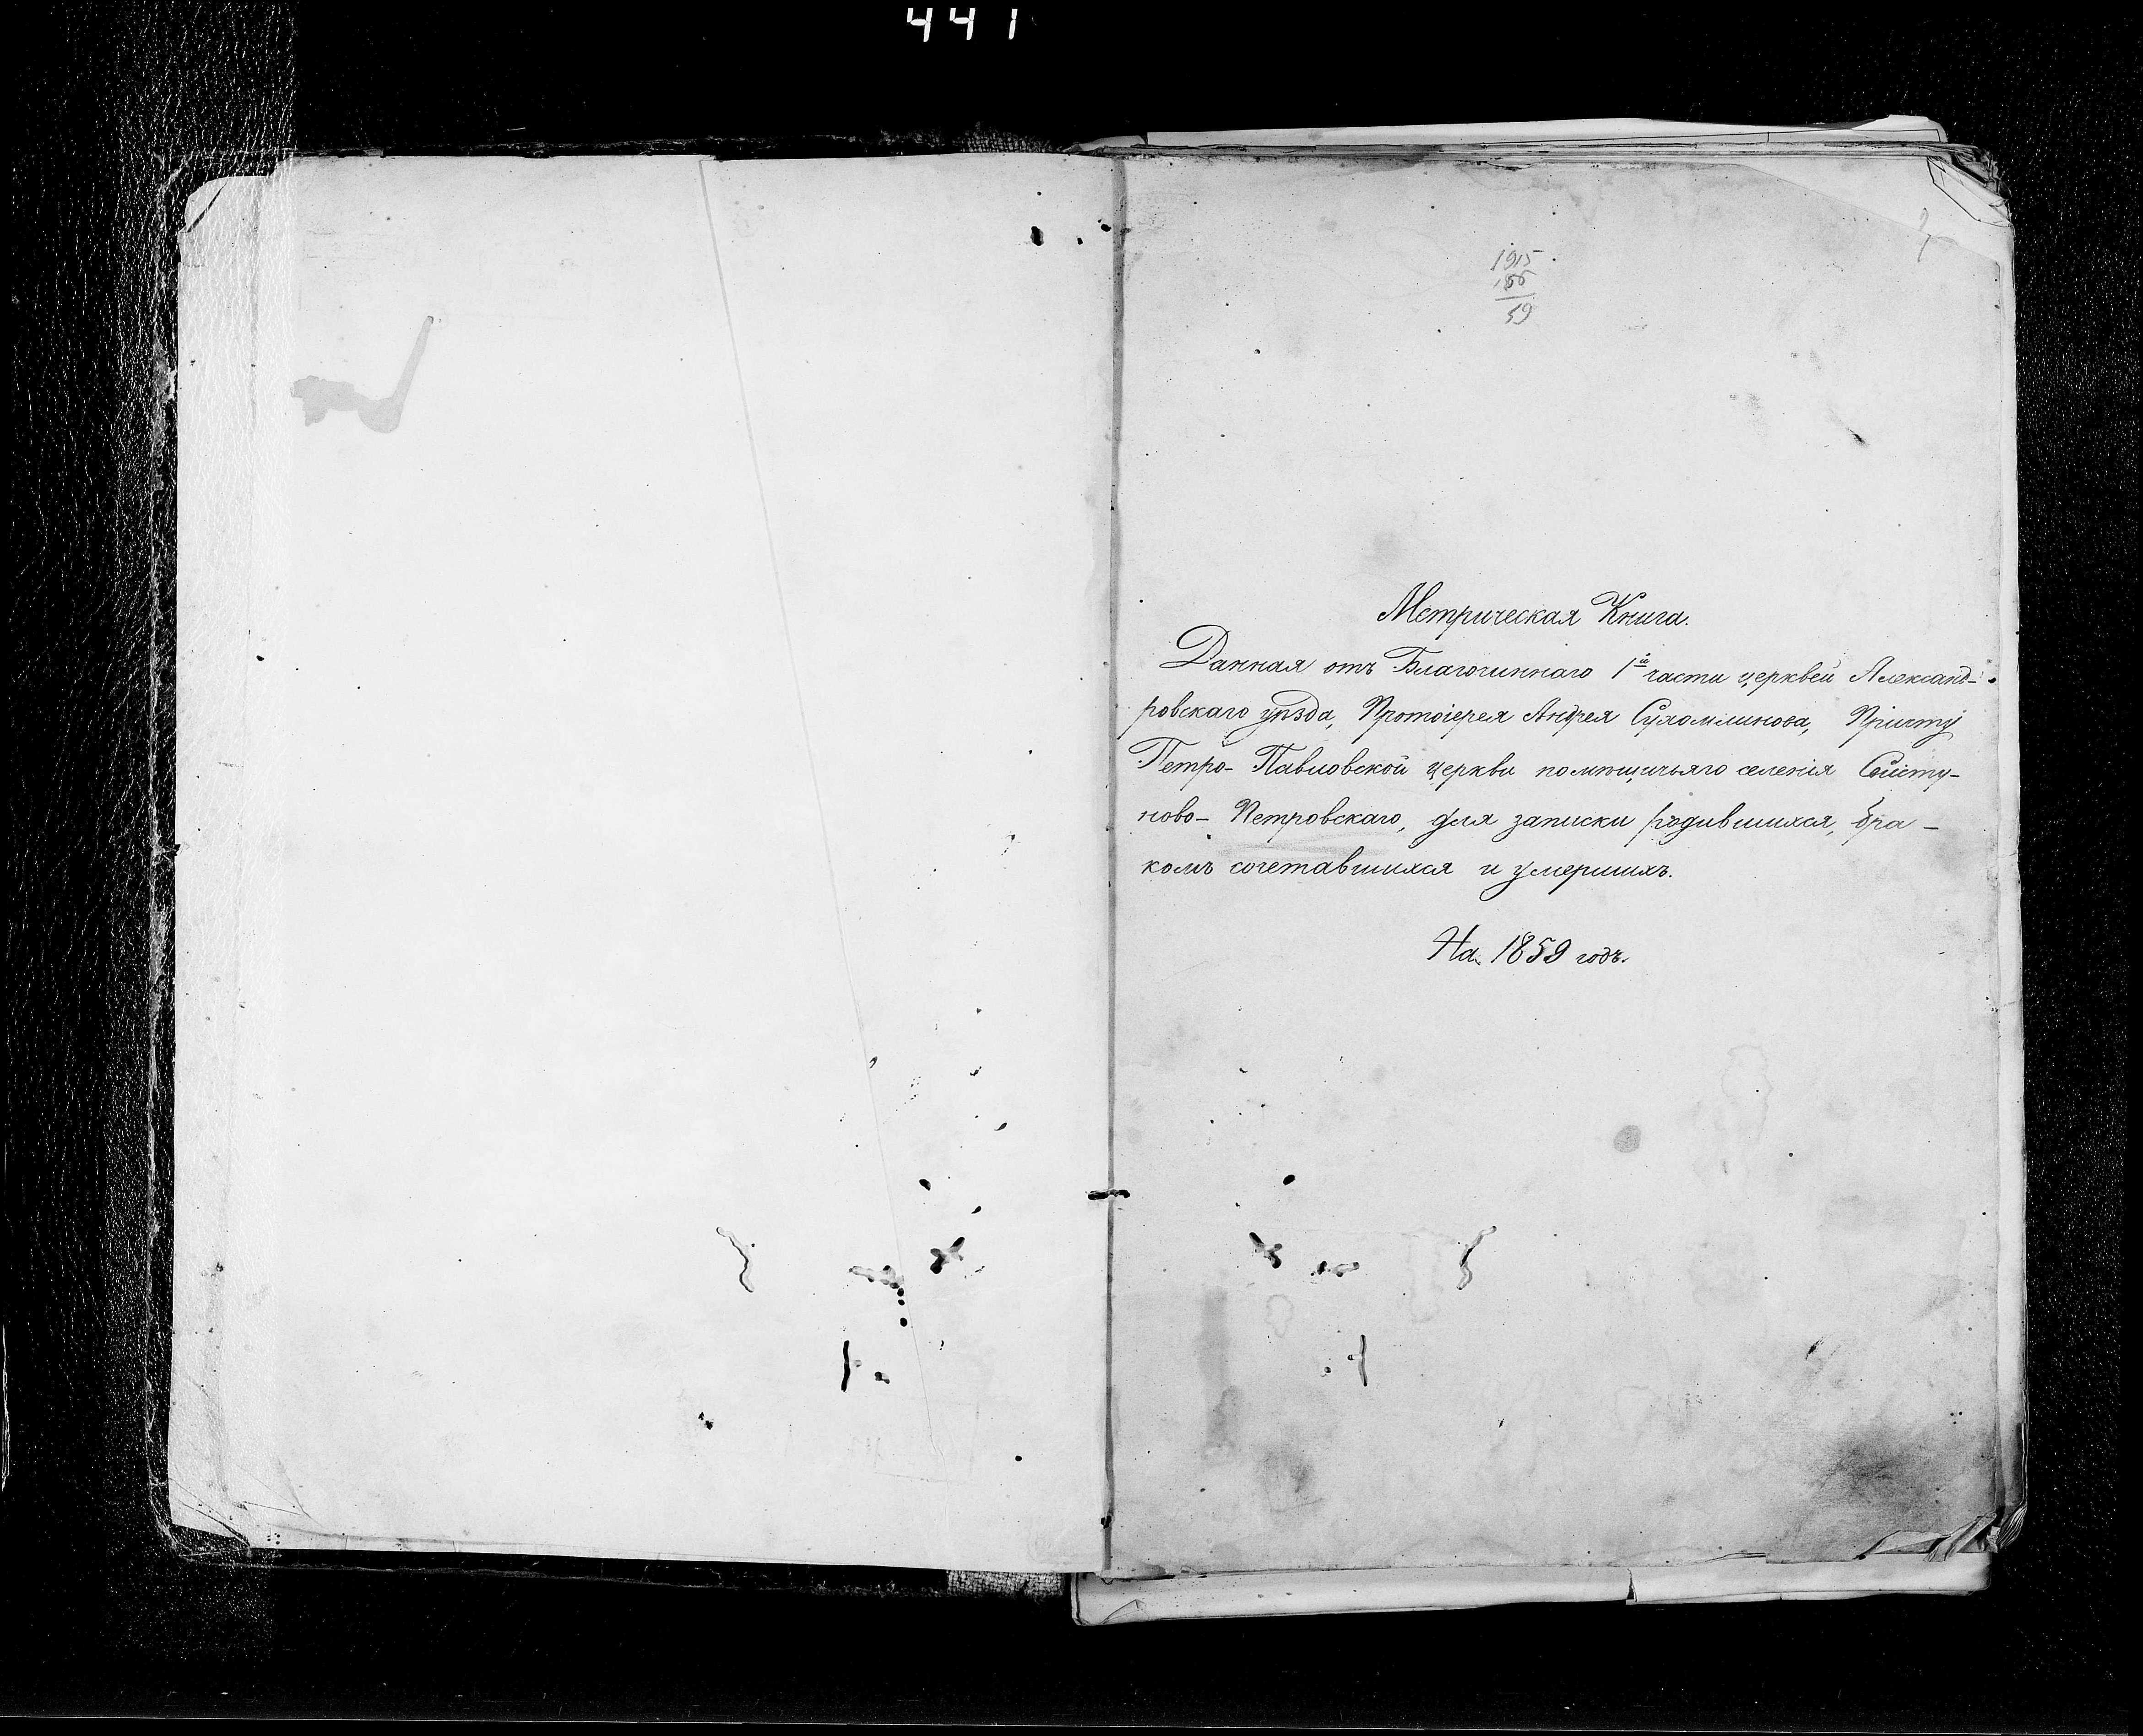 441
1915
1856
59
Метрическая Книга.
Данная отъ Благочиннаго 1й части церквей Александ-
ровскаго уѣзда, Протоіерея Андрея Сухомлинова, Причту
Петро-Павловской церкви помѣщичьяго селенія Свисту-
ново-Петровскаго, для записки родившихся, бра-
комъ сочетавшихся и умершихъ.
На 1859 годъ.